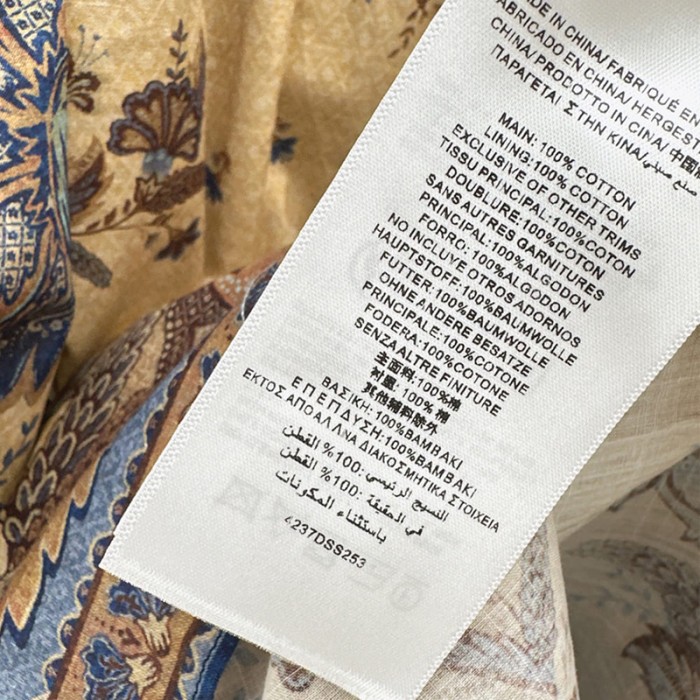 MADE IN CHINA/FABRIQUÉ EN
FABRICADO EN CHINA/ HERGEST
CHINA/ PRODOTTO IN CINA/ 中国
ΠΑΡΑΓΕΤΑΙ ΣΤΗΝ ΚΙΝΑ/
MAIN: 100% COTTON
LINING:100% COTTON
EXCLUSIVE OF OTHER TRIMS
TISSU PRINCIPAL:100%COTON
DOUBLURE:100%COTON
SANS AUTRES GARNITURES
PRINCIPAL:100%ALGODON
FORRO:100%ALGODON
NO INCLUYE OTROS ADORNOS
HAUPTSTOFF:100%BAUMWOLLE
FUTTER:100%BAUMWOLLE
OHNE ANDERE BESATZE
PRINCIPALE:100%COTONE
FODERA:100%COTONE
SENZA ALTRE FINITURE
主面料:100%棉
衬里:100%棉
其他辅料除外
ΒΑΣΙΚΗ:100%ΒΑΜΒΑΚΙ
ΕΠΕΝΔΥΣΗ:100%ΒΑΜΒΑΚΙ
ΕΚΤΟΣ ΑΠΟ ΑΛΛΝΑ ΔΙΑΚΟΣΜΗΤΙΚΑ ΣΤΟΙΧΕΙΑ
النسيج الرئيسي: 100% القطن
في الحقيقة: 100% القطن
باستثناء المكونات
237DSS253